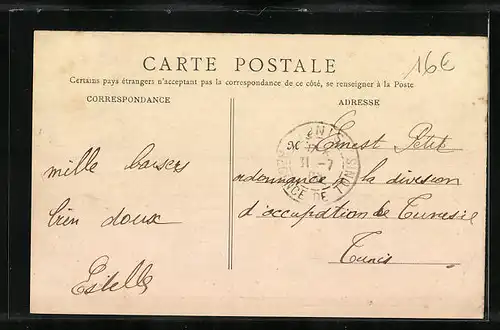 CARTE POSTALE
16€
Certains pays étrangers n'acceptant pas la correspondance de ce côté, se renseigner à la Poste
CORRESPONDANCE
ADRESSE
mille baisers
bien doux
Estelle
M Ernest Petit
ordonnance à la division
d'occupation de Tunisie
Tunis
31 - 7
TUNIS